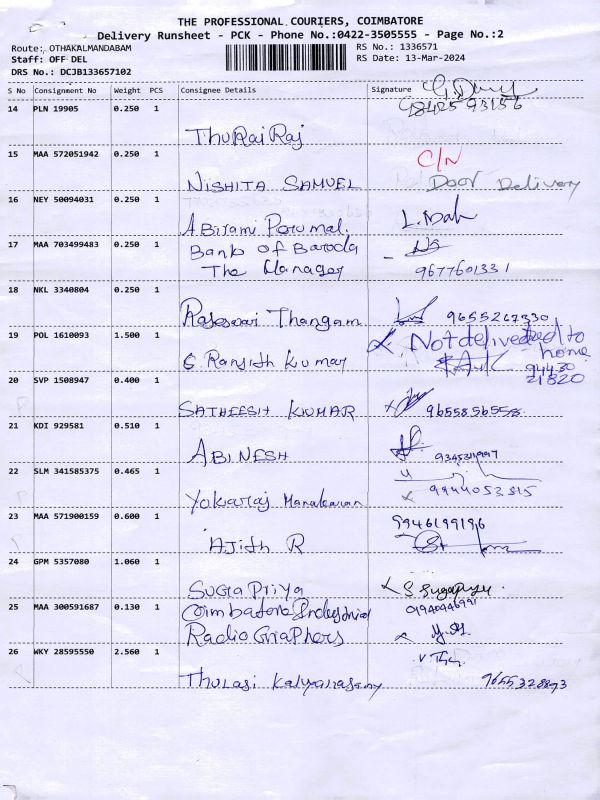 THE PROFESSIONAL COURIERS, COIMBATORE
Delivery Runsheet - PCK - Phone No.:0422-3505555 - Page No.:2
Route: OTHAKALMANDABAM
Staff: OFF DEL
DRS No.: DCJB133657102
RS No.: 1336571
RS Date: 13-Mar-2024
S No Consignment No Weight PCS Consignee Details Signature
14 PLN 19905 0.250 1
ThuRaiRaj
15 MAA 572051942 0.250 1 C/N
NISHITA SAMUEL Door Delivery
16 NEY 50094031 0.250 1
Abirami Perumal.
17 MAA 703499483 0.250 1 Bank of Baroda
The Manager 9677601331
18 NKL 3340804 0.250 1
Rajeswari Thangam 9655267330
19 POL 1610093 1.500 1 Not delivered to
home
G. Ranjith Kumar 94430
21820
20 SVP 1508947 0.400 1
SATHEESH KUMAR 9655856558
21 KDI 929581 0.510 1
ABINESH
22 SLM 341585375 0.465 1
Yokaraj 9944053515
23 MAA 571900159 0.600 1
Ajith R
24 GPM 5357080 1.060 1
SugaPriya
25 MAA 300591687 0.130 1 Coimbatore Industrial
Radio Graphers
26 WKY 28595550 2.560 1
Thulasi 9655328873